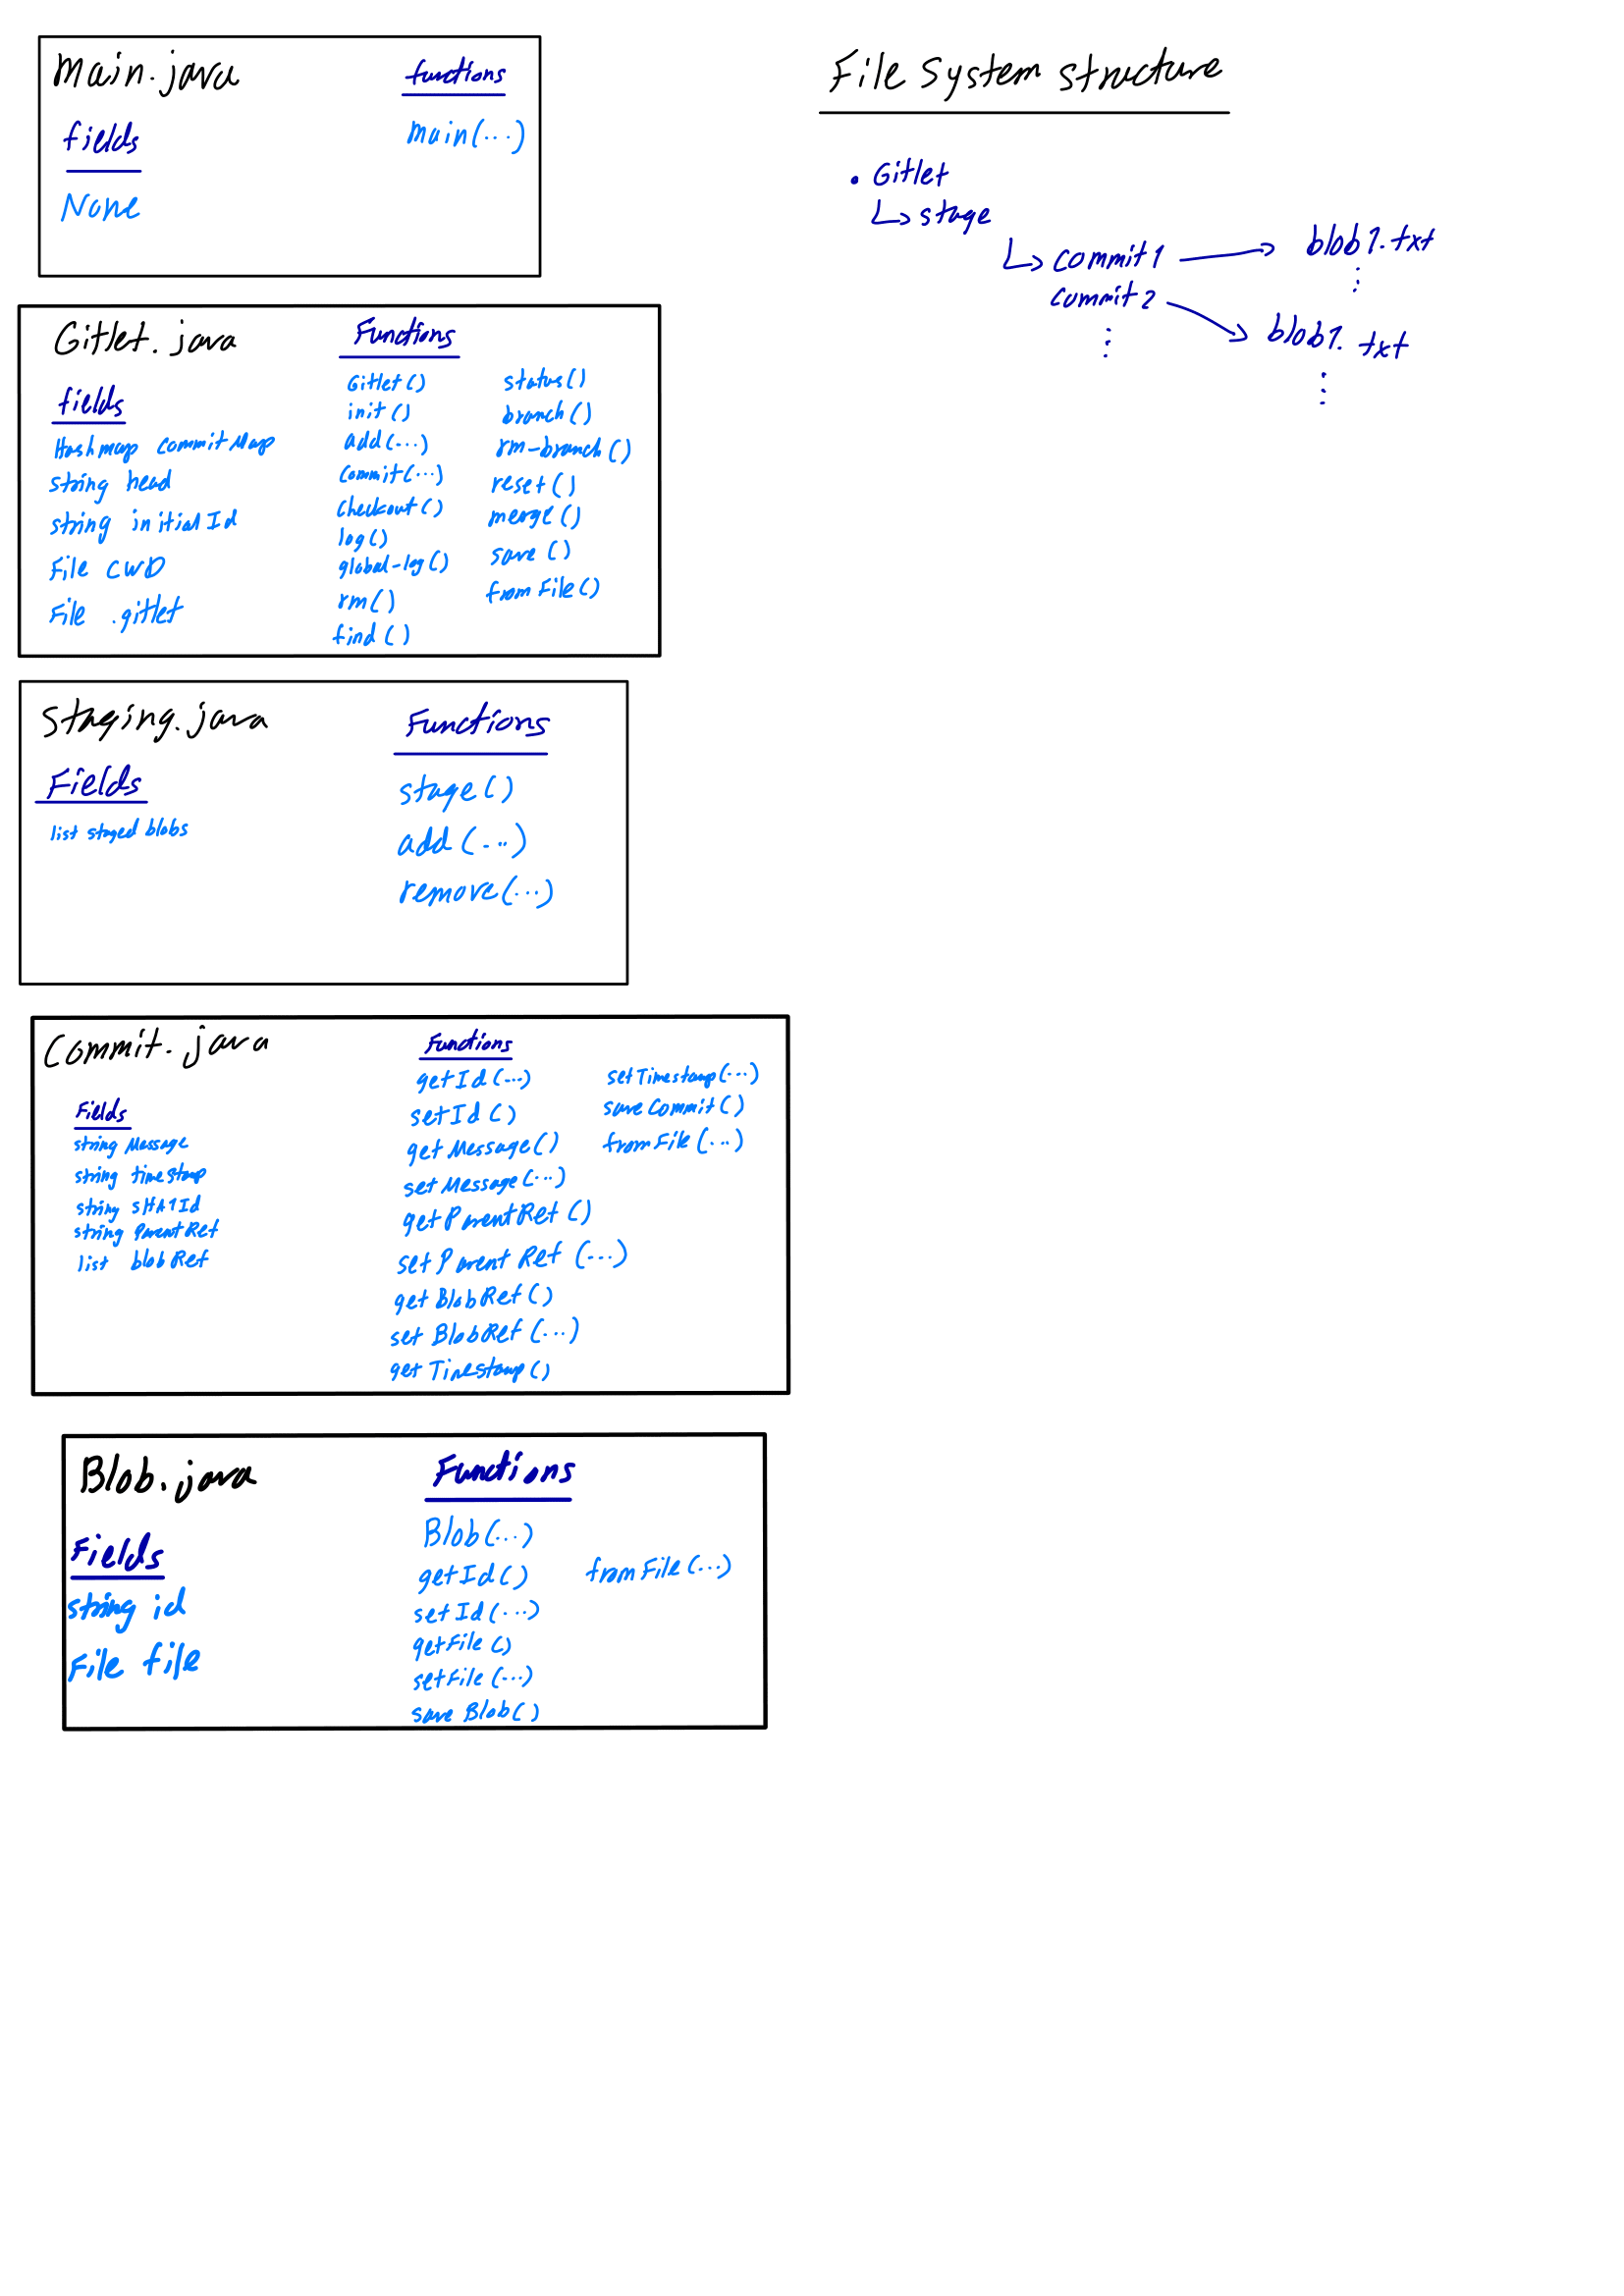 Main.java
fields
None
functions
main(...)
Gitlet.java
fields
Hashmap CommitMap
string head
string initialId
File CWD
File .gitlet
Functions
Gitlet()
init()
add(...)
Commit(...)
checkout()
log()
global-log()
rm()
find()
status()
branch()
rm-branch()
reset()
merge()
save()
fromFile()
Staging.java
Fields
list staged blobs
Functions
stage()
add(...)
remove(...)
Commit.java
Fields
string Message
string timestamp
string SHA1Id
string ParentRef
list blobRef
Functions
getId(...)
setId()
getMessage()
setMessage(...)
getParentRef()
setParentRef(...)
getBlobRef()
setBlobRef(...)
getTimestamp()
setTimestamp(...)
saveCommit()
fromFile(...)
Blob.java
Fields
string id
File file
Functions
Blob(...)
getId()
setId(...)
getFile()
setFile(...)
saveBlob()
fromFile(...)
File System structure
• Gitlet
stage
commit1
blob1.txt
commit2
blob1.txt